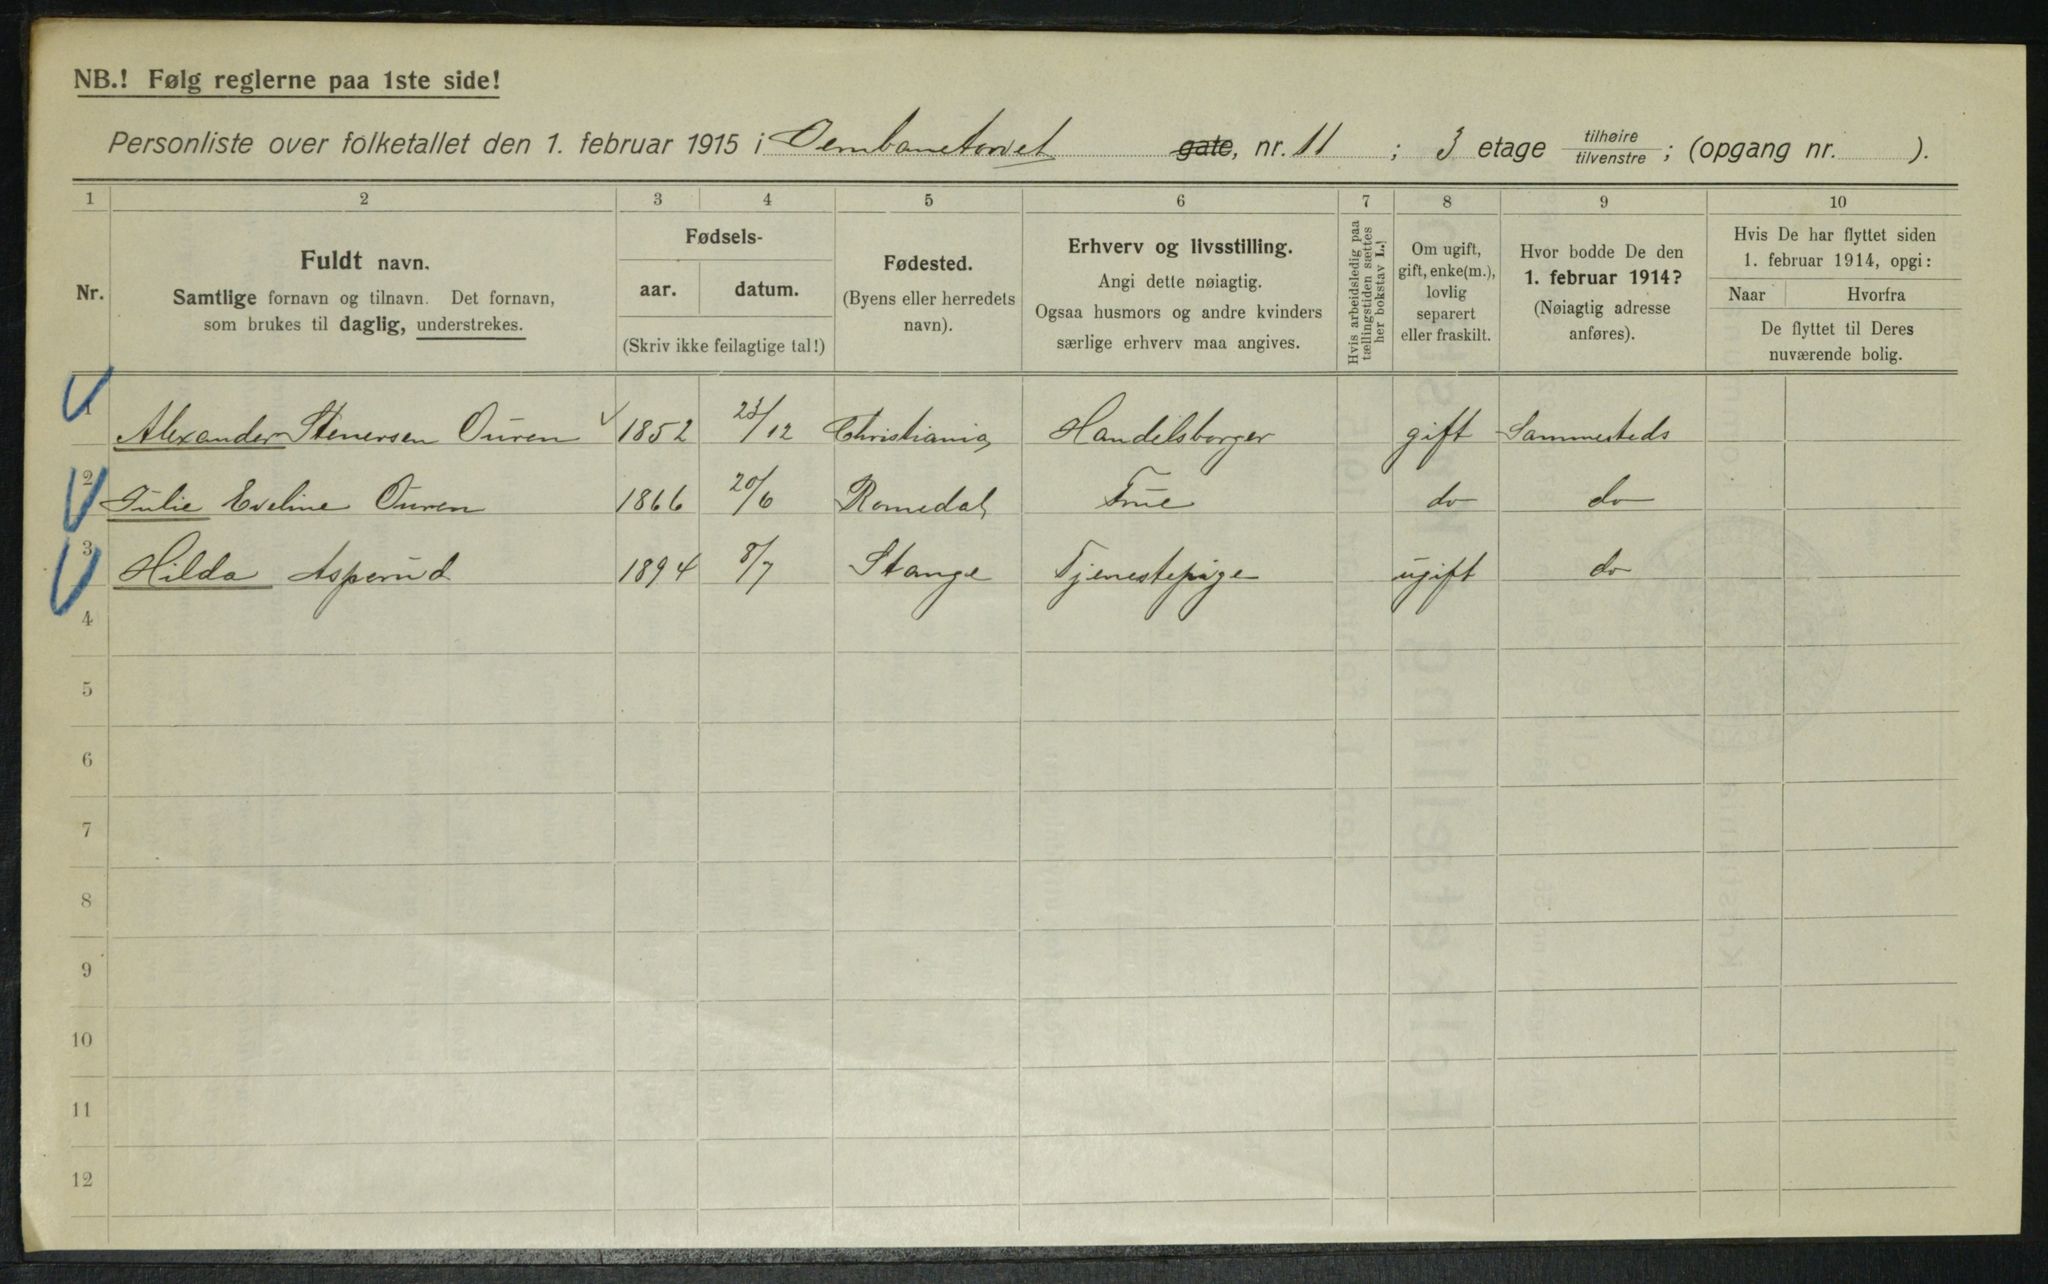 NB.! Følg reglerne paa 1ste side!
Personliste over folketallet den 1. februar 1915 i Jernbanetorvet gate, nr. 11 ; 3 etage tilhøire / tilvenstre ; (opgang nr. ).
1 2 3 4 5 6 7 8 9 10
Nr.
Fuldt navn.
Samtlige fornavn og tilnavn. Det fornavn,
som brukes til daglig, understrekes.
Fødsels-
aar. datum.
(Skriv ikke feilagtige tal!)
Fødested.
(Byens eller herredets
navn).
Erhverv og livsstilling.
Angi dette nøiagtig.
Ogsaa husmors og andre kvinders
særlige erhverv maa angives.
Hvis arbeidsledig paa
tællingstiden sættes
her bokstav L.!
Om ugift,
gift, enke(m.),
lovlig
separert
eller fraskilt.
Hvor bodde De den
1. februar 1914?
(Nøiagtig adresse
anføres).
Hvis De har flyttet siden
1. februar 1914, opgi:
Naar Hvorfra
De flyttet til Deres
nuværende bolig.
1 Alexander Stenersen Ouren 1852 23/12 Christiania Handelsborger gift Sammesteds
2 Julie Eveline Ouren 1866 20/6 Romedal Frue do do
3 Hilda Asperud 1894 8/7 Stange Tjenestepige ugift do
4
5
6
7
8
9
10
11
12